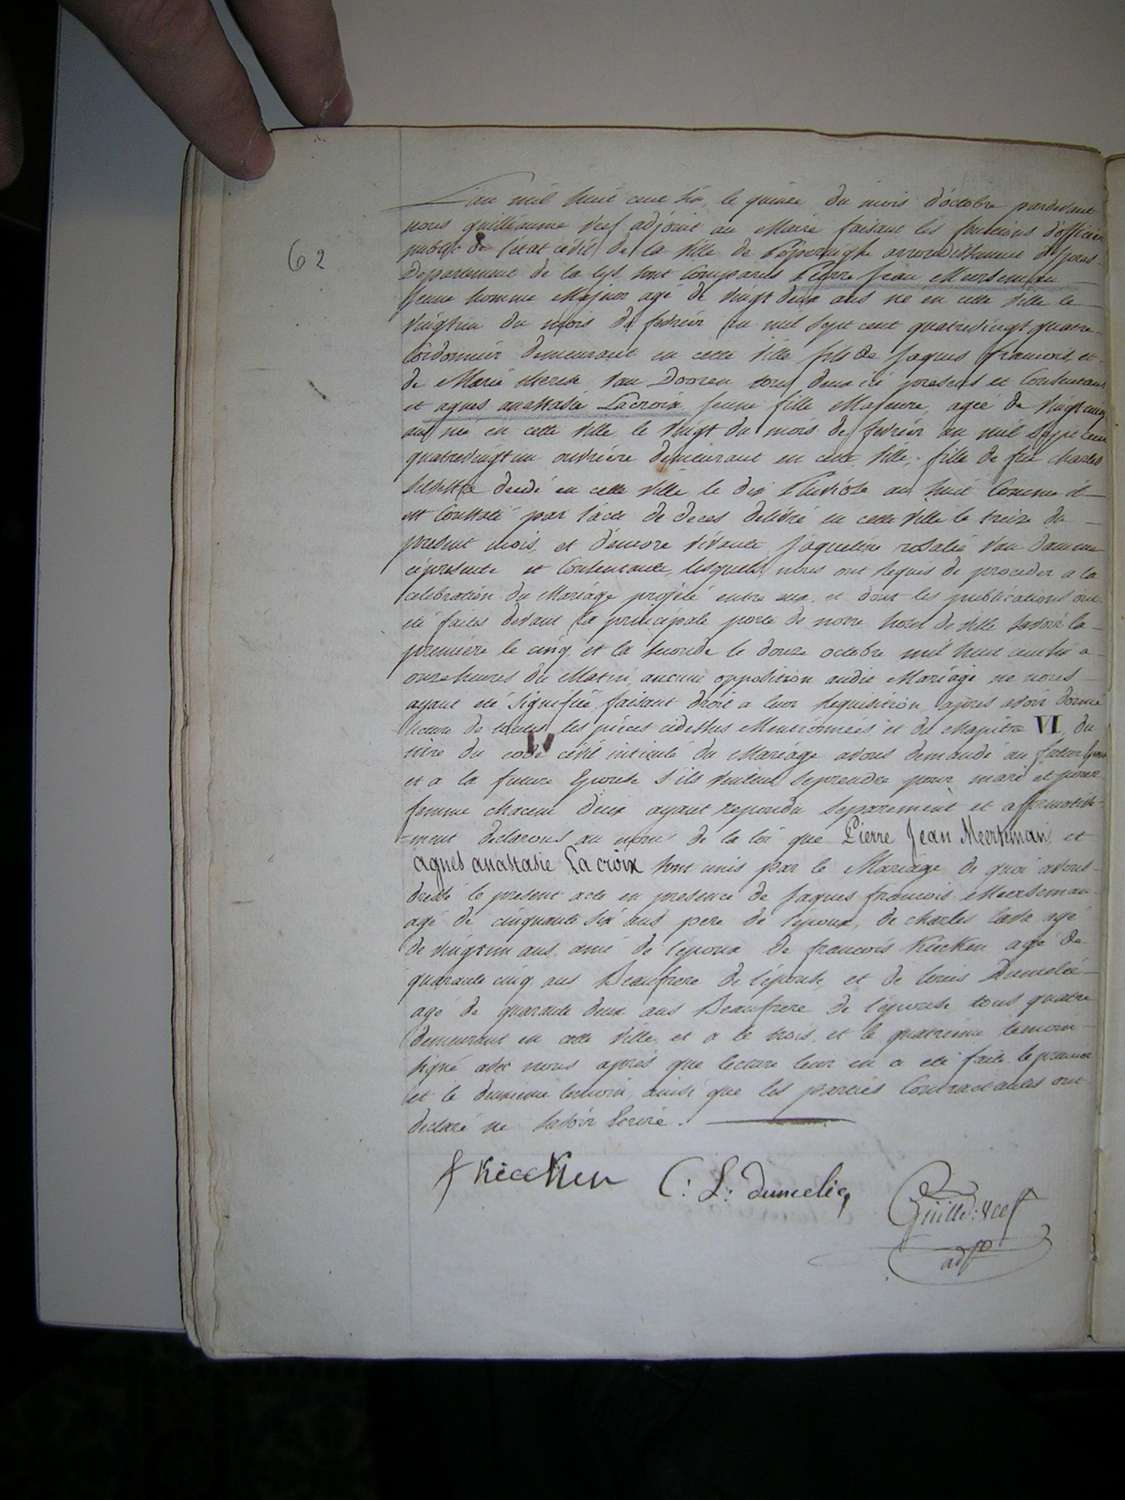 62
L'an mil huit cent six, le quinze du mois d'octobre pardevant
nous guilleaume Vcef adjoint au Maire faisant les functions d'officier
public de l'état civil de la Ville de Poperinghe arrondissement d'ypres
Departement de la Lys sont comparus Pierre Jean Meerseman
Jeune homme Majeur agé de vingt deux ans né en cette ville le
vingtun du mois de fevrier an mil sept cent quatrevingt quatre
Cordonnier demeurant en cette ville fils de Jaques francois, et
de Marie therese Van Dooren tous deux ici presens et Consentans
et agnes anastasie Lacroix Jeune fille Majeure, agée de vingt cinq
ans née en cette ville le vingt du mois de fevrier an mil sept cent
quatrevingt un ouvrière demeurant en cette ville; fille de feu charles
decedé en cette ville le dix Pluviôse an huit Comme il
est Constaté par l'acte de deces delivré en cette ville le treize du
present mois, et d'encore vivante Jaqueline rosalie Van Damme
ci presente et Consentante, lesquels nous ont requis de proceder a la
celebration du Mariage projeté entre eux, et dont les publications ont
été faites devant la principale porte de notre hotel de ville savoir la
premiere le cinq et la seconde le douze octobre mil huit cent six a
onze heures du Matin, aucune opposition audit Mariage ne nous
ayant été signifiée faisant droit a leur requisition, après avoir donné
lecture de toutes les pièces cidessus Mentionnées et du chapitre VI du
titre du code civil intitulé du Mariage avons demandé au futur Epoux
et a la future Epouse s'ils veulent se prendre pour mari et pour
femme chacun d'eux ayant repondu separement et affirmative-
-ment declarons au nom de la loi que Pierre Jean Meerseman et
agnes anastasie La croix sont unis par le Mariage de quoi avons
dressé le present acte en presence de Jaques francois Meerseman
agé de cinquante six ans pere de l'epoux, de charles agé
de vingtun ans, ami de l'epoux de francois Kiecken agé de
quarante cinq ans Beaufrere de l'épouse, et de louis Dumelié
agé de quarante deux ans Beaufrere de l'épouse tous quatre
demeurant en cette ville et a le trois, et le quatrieme temoin
signé avec nous après que lecture leur en a été faite le premier
et le deuxieme temoin, ainsi que les parties Contractantes ont
declaré ne savoir Ecrire.
f Kiecken C: L: dumelie Guille: Vcef
adjt